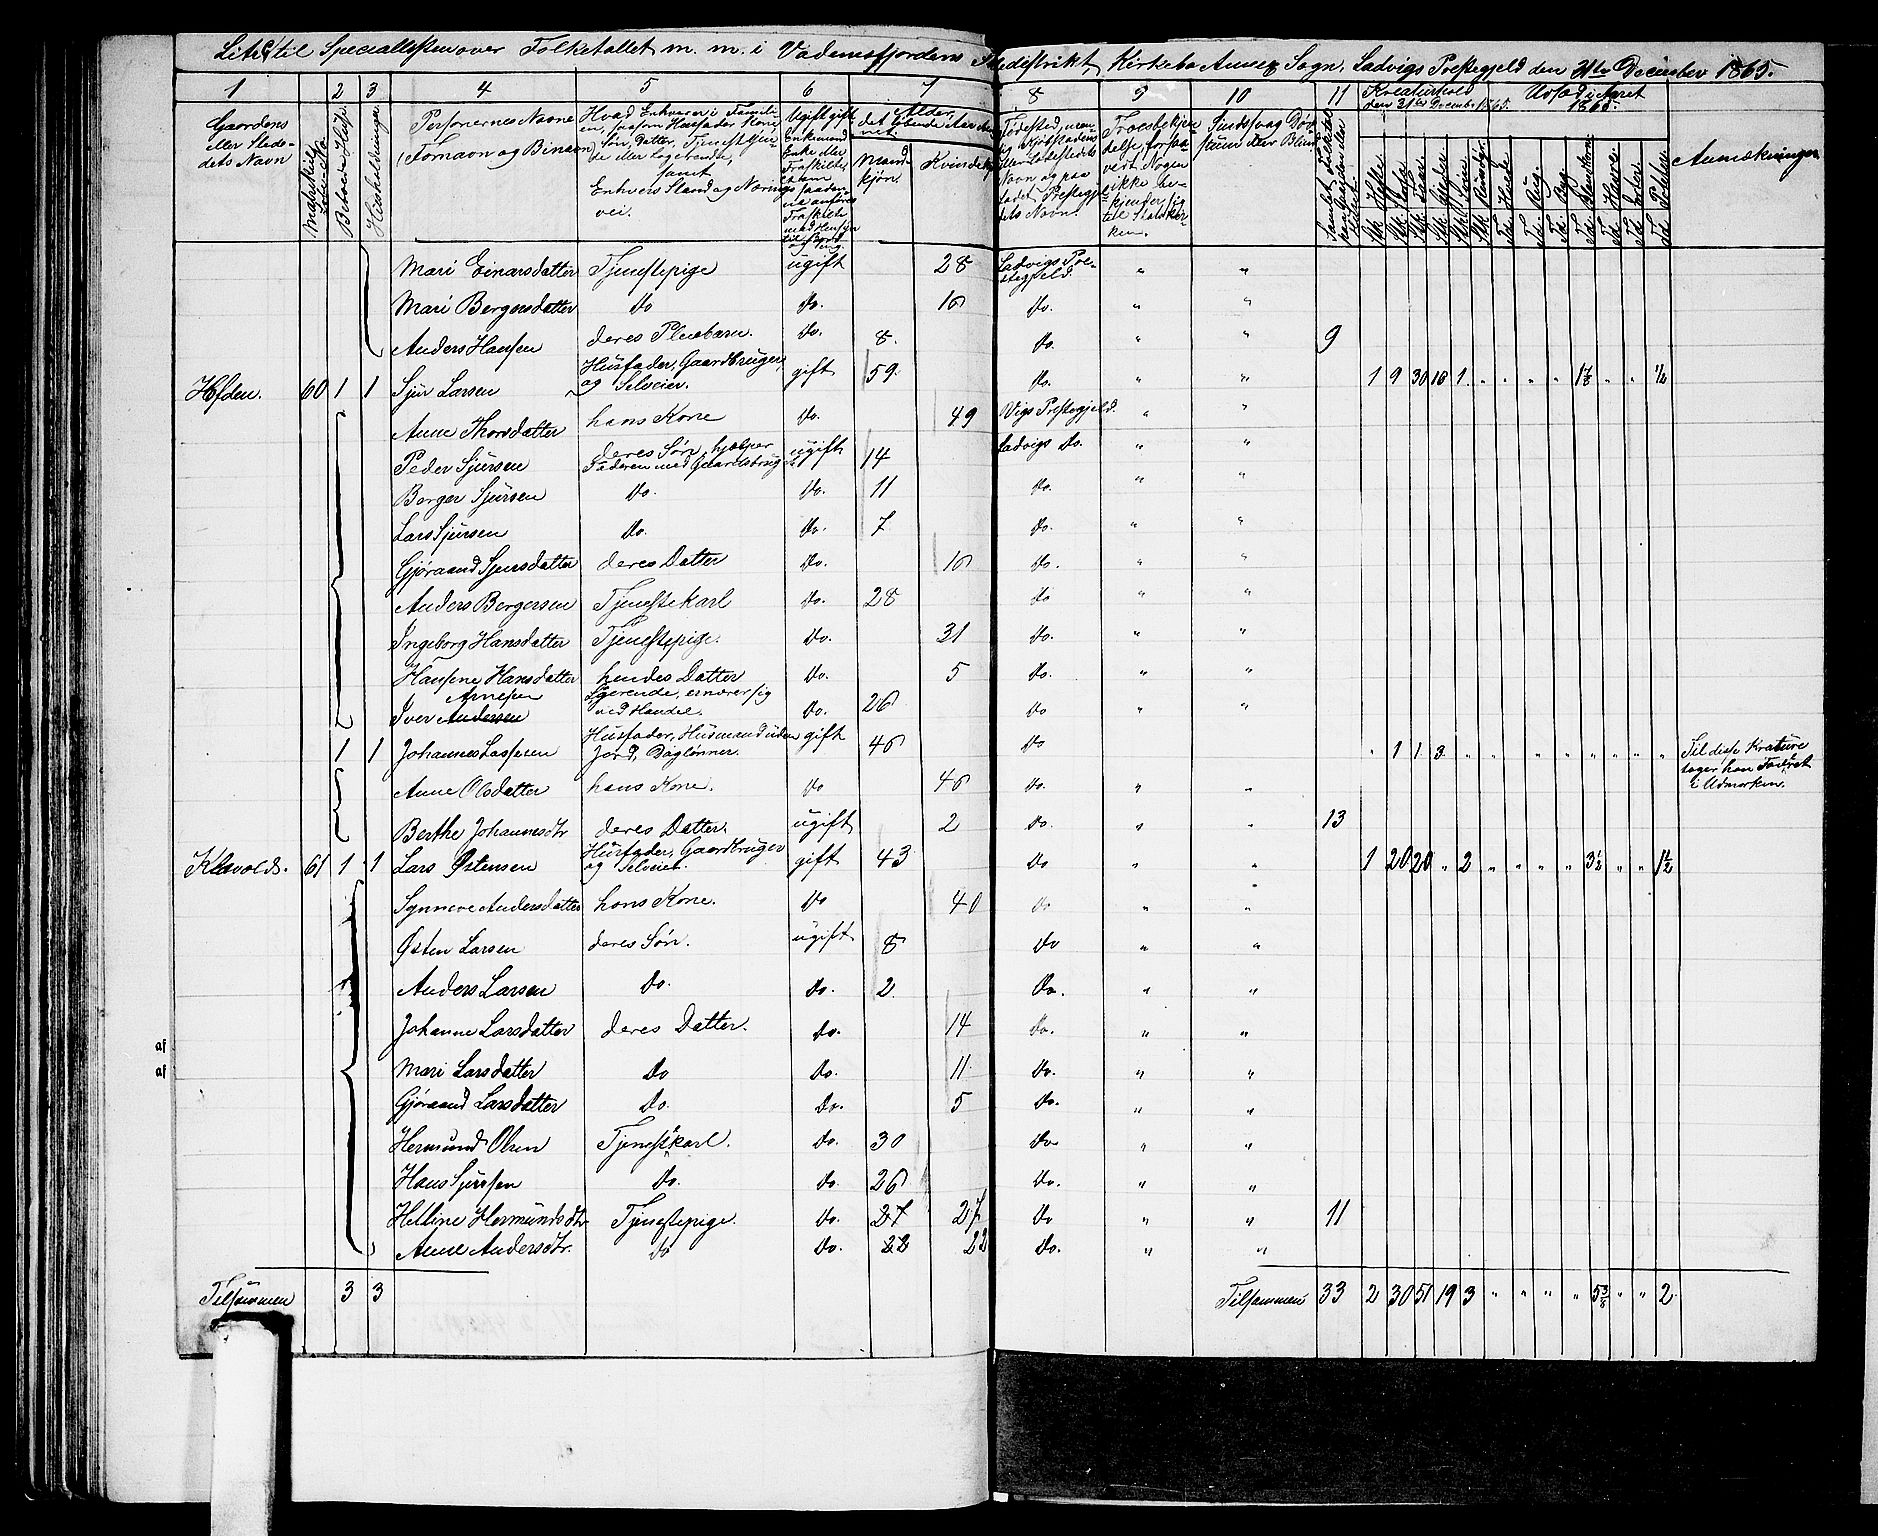 til Speciallisten over Folketallet m. m. i Vademsfjordens Skoledistrikt, Kirkebø Annex Sogn, Ladvigs Præstegjeld den 31te December 1865.
1 2 3 4 5 6 7 8 9 10 11
Gaardens eller Stedets Navn
Beboede Huse.
Huusholdninger
Personernes Navne (Fornavn og Binavn)
Hvad Enhver er i Familien, saasom Husfader, Kone, Søn, Datter, Tjenestetyende eller Logerende, samt Enhvers Stand og Næringsvei.
Ugift, gift, Enkemand, Enke eller Fraskilt
Alder, det løbende Aar
Mandkjøn. Kvindekjøn
Fødested
Troesbekjendelse, forsaavidt Nogen ikke bekjender sig til Statskirken.
Sindssvag Døvstum eller Blind
Kreaturhold den 31te December 1865.
Udsæd i Aaret 1865.
Anmærkninger
Mari Einarsdatter Tjenestepige ugift 28 Ladvigs Præstegjeld " "
Mari Bergersdatter Do Do. 16 Do. " "
Anders Hansen deres Pleiebarn. Do. 8. Do. " " 9
Hofden. 60 1 1 Sjur Larsen Husfader, Gaardbruger, og Selveier. gift 59 Do. " " 1 9 30 16 1 " " " " 1 7/8 " " 1/2
Anne Thorsdatter hans Kone Do. 49 Vigs Præstegjeld. " "
Peder Sjursen deres Søn, hjælper Faderen med Gaardsbrug ugift 14 Ladvigs Do. " "
Berger Sjursen Do. Do. 11 Do. " "
Lars Sjursen Do. Do. 7 Do. " "
Gjøraand Sjursdatter deres Datter Do. 16 Do. " "
Anders Bergersen Tjenestekarl Do. 28 Do " "
Ingeborg Hansdatter Tjenestepige. Do. 31 Do. " "
Hansine Hansdatter hendes Datter Do. 5 Do. " "
Arnesen
Iver Andersen Logerende, ernærer sig ved Handel. Do. 26 Do " "
1 1 Johannes Lassesen Husfader, Husmand uden Jord, Daglønner. gift 46 Do " " " 1 1 3 " " " " " " " " " Til disse Kreature tager han Foderet i Udmarken.
Anne Olsdatter hans Kone. Do 46 Do. " "
Berthe Johannesdtr deres Datter. ugift 2 Do. " " 13
Klævold. 61 1 1 Lars Østensen Husfader, Gaardbruger og Selveier. gift 43 Do " " 1 20 20 " 2 " " " " 3 1/2 " " 1 1/2
Synneve Andersdatter hans Kone. Do 40 Do " "
Østen Larsen deres Søn. ugift 8 Do " "
Anders Larsen Do. Do. 2 Do. " "
Johanne Larsdatter deres Datter. Do. 14 Do. " "
Mari Larsdatter Do Do. 11 Do. " "
Gjøraand Larsdatter Do. Do. 5 Do. " "
Hermund Olsen Tjenestkarl. Do. 30 Do " "
Hans Sjursen Do. Do. 26 Do. " "
Helline Hermundsdtr Tjenestepige. Do. 27 27 Do " " 11
Anne Andersdtr. Do Do. 22 22 Do. " "
Tilsammen 3 3 Tilsammen 33 2 30 51 19 3 " " " " 5 3/8 " " 2
af
af